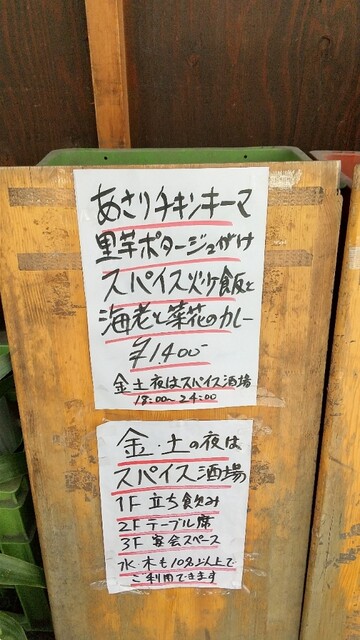 あさりチキンキーマ
里芋ポタージュがけ
スパイス炊き飯と
海老と菜花のカレー
¥1400-
金土夜はスパイス酒場
18:00~24:00
金・土の夜は
スパイス酒場
1F 立ち食飲み
2F テーブル席
3F 宴会スペース
水・木も10名以上で
ご利用できます